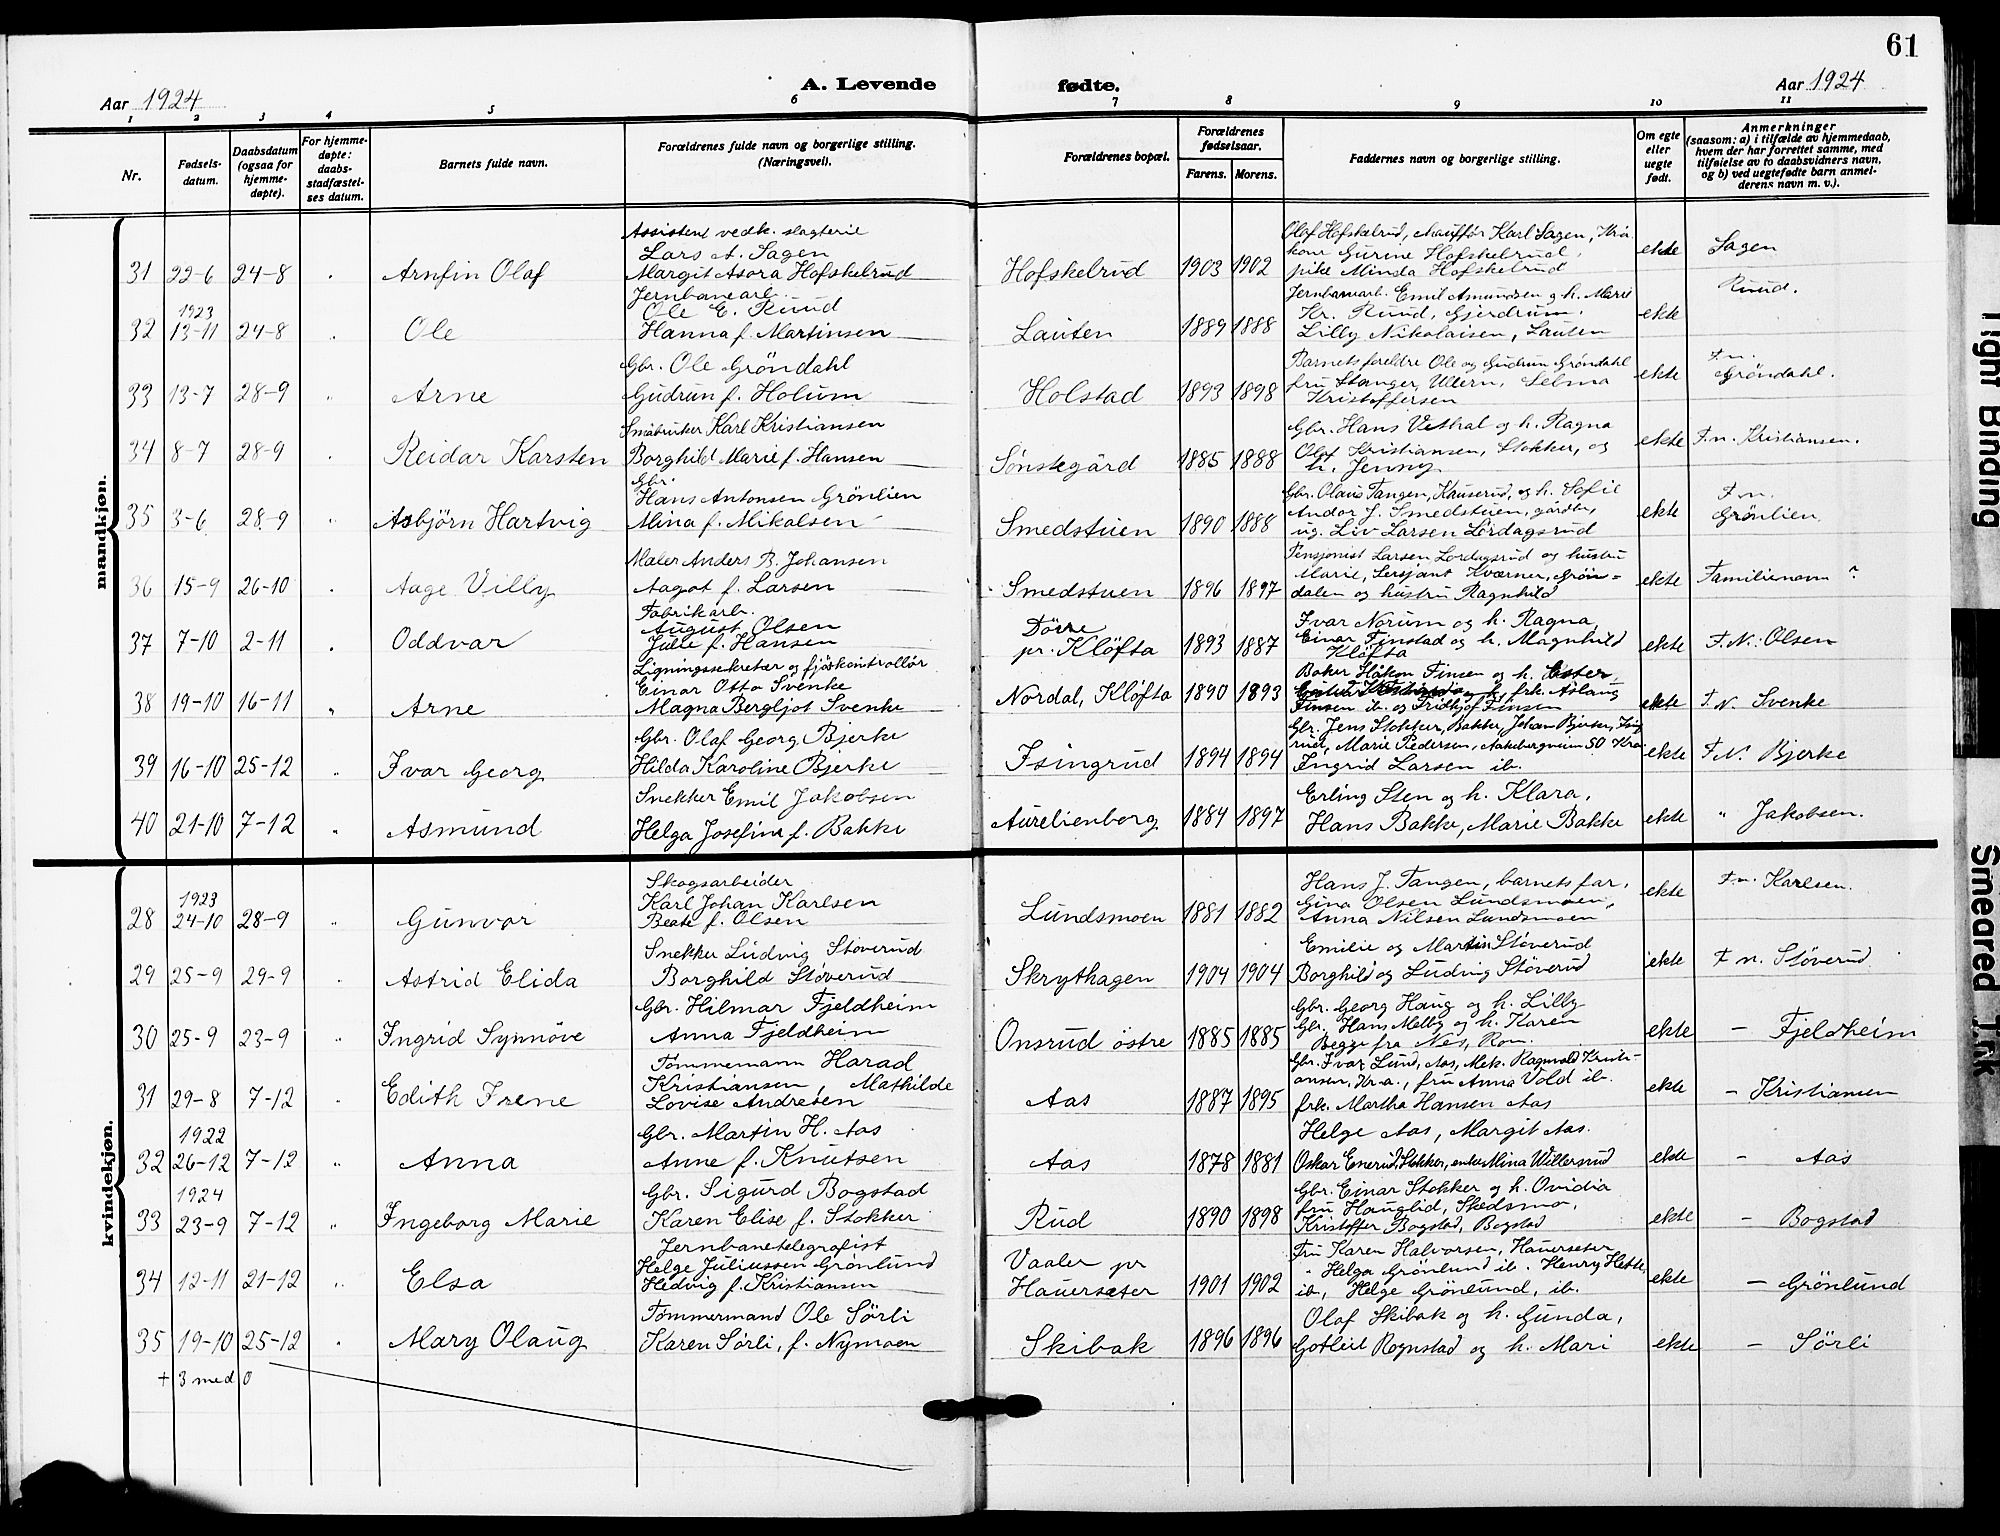 61
A. Levende fødte.
Aar 1924
Aar 1924
1 2 3 4 5 6 7 8 9 10 11
Nr.
Fødsels-
datum.
Daabsdatum
(ogsaa for
hjemme-
døpte).
For hjemme-
døpte:
daabs-
stadfæstel-
ses datum.
Barnets fulde navn.
Forældrenes fulde navn og borgerlige stilling.
(Næringsvei).
Forældrenes bopæl.
Forældrenes
fødselsaar.
Farens. Morens.
Faddernes navn og borgerlige stilling.
Om egte
eller
uegte
født.
Anmerkninger
(saasom: a) i tilfælde av hjemmedaab,
hvem der har forrettet samme, med
tilføielse av to daabsvidners navn,
og b) ved uegtefødte barn anmel-
derens navn m. v.).
mandkjøn.
31 22-6 24-8 " Arnfin Olaf
Assistent vedk. slagterie
Lars A. Sagen
Margit Asora Hofskelrud
Hofskelrud 1903 1902
Olaf Hofskelrud, Karl Sagen, Kra.
kone Gurine Hofskelrud,
pike Minda Hofskelrud
ekte Sagen
32 1923
13-11 24-8 " Ole
Jernbanearb.
Ole E. Ruud
Hanna f. Martinsen
Lauten 1889 1888
Jernbanearb. Emil Amundsen g h. Marie
Kr. Ruud, Gjerdrum,
Lilly Nikolaisen, Lauten
ekte Ruud.
33 13-7 28-9 " Arne
Gbr. Ole Gröndahl
Gudrun f. Holum
Holstad 1893 1898
Barnets foreldre Ole og Gudrun Gröndahl
fru Stanger, Ullern, Selma
Kristoffersen
ekte F.n.
Gröndahl.
34 8-7 28-9 " Reidar Karsten
Småbruker Karl Kristiansen
Borghild Marie f. Hansen
Sønstegård 1885 1888
Gbr. Hans Vethal og h. Ragna
Olaf Kristiansen, Stokker, og
h. Jenny
ekte F.n. Kristiansen.
35 3-6 28-9 " Asbjörn Hartvig
Gbr.
Hans Antonsen Grönlien
Mina f. Mikalsen
Smedstuen 1890 1888
Gbr. Olaus Tangen, Kauserud, og h. Sofie
Andor J. Smedstuen, gardbr,
ug. Liv Larsen Lördagsrud
ekte F.n.
Grönlien.
36 15-9 26-10 " Aage Villy
Maler Anders B. Johansen
Aagot f. Larsen
Smedstuen 1896 1897
Pensjonist Larsen Lördagsrud og hustru
Marie, Sersjant Kværner, Grön=
dalen og hustru Ragnhild
ekte Familienavn?
37 7-10 2-11 " Oddvar
Fabrikarb.
August Olsen
Julie f. Hansen
pr. Klöfta 1893 1887
Ivar Norum og h. Ragna,
Einar Finstad og h. Magnhild
Klöfta
ekte F.N.: Olsen
38 19-10 16-11 " Arne
Ligningssekretær og fjöskontrollør
Einar Otto Svenke
Magna Bergljot Svenke
Nordal, Kløfta 1890 1893
Baker Håkon Finsen og h. Ester,
frk. Aslaug
Finsen ib. og Fridtjof Finsen
ekte F.N. Svenke
39 16-10 25-12 " Ivar Georg
Gbr. Olaf Georg Bjerke
Hilda Karoline Bjerke
Isingrud 1894 1894
Gbr. Jens Stokker, Bakke, Johan Bjerke, Ising
rud, Marie Pedersen, Aakebergveien 50 Kra.
Ingrid Larsen ib.
ekte F.N. Bjerke
40 21-10 7-12 " Asmund
Snekker Emil Jakobsen
Helga Josefine f. Bakke
Aurelienborg 1884 1897
Erling Sten og h. Klara,
Hans Bakke, Marie Bakke
ekte " Jakobsen.
kvindekjøn.
28 1923
24-10 28-9 " Gunvor
Skogsarbeider
Karl Johan Karlsen
Beate f. Olsen
Lundsmoen 1881 1882
Hans J. Tangen, barnets far,
Gina Olsen Lundsmoen,
Anna Nilsen Lundsmoen
ekte F.n. Karlsen.
29 25-9 29-9 " Astrid Elida
Snekker Ludvig Støverud
Borghild Støverud
Skrythagen 1904 1904
Emilie og Martin Støverud
Borghild og Ludvig Støverud
ekte F.n. Støverud
30 25-9 23-9 " Ingrid Synnöve
Gbr. Hilmar Fjeldheim
Anna Fjeldheim
Onsrud östre 1885 1885
Gbr. Georg Haug og h. Lilly
Gbr. Hans Melby og h. Karen
Begge fra Nes, Rom.
ekte - Fjeldheim
31 29-8 7-12 " Edith Irene
Tömmemann Harad
Kristiansen, Mathilde
Lovise Andresen
Aas 1887 1895
Gbr. Ivar Lund, Aas, Mek. Ragnvald Kristi-
ansen, Kra., fru Anna Vold ib.
frk. Martha Hansen Aas
ekte - Kristiansen
32 1922
26-12 7-12 " Anna
Gbr. Martin H. Aas
Anne f. Knutsen
Aas 1878 1881
Helge Aas, Margit Aas.
Oskar Enerud, Stokker, enke Mina Willersrud
ekte - Aas
33 1924
23-9 7-12 " Ingeborg Marie
Gbr. Sigurd Bogstad
Karen Elise f. Stokker
Rud 1890 1898
Gbr. Einar Stokker og h. Ovidia
fru Hauglid, Skedsmo,
Kristoffer Bogstad, Bogstad
ekte - Bogstad
34 12-11 21-12 " Elsa
Jernbanetelegrafist
Helge Juliussen Grönlund
Hedvig f. Kristiansen
Vaaler pr
Hauersæter 1901 1902
Fru Karen Halvorsen, Hauerseter
" Helga Grönlund ib. Henry
ib, Helge Grönlund, ib.
ekte - Grönlund
35 19-10 25-12 " Mary Olaug
Tömmermand Ole Sörli
Karen Sörli, f. Nymoen
Skibak 1896 1896
Olaf Skibak og h. Gunda,
Gotleil Rognstad og h. Mari
ekte - Sörli
+ 3 med 0
Tight Binding
Smeared Ink